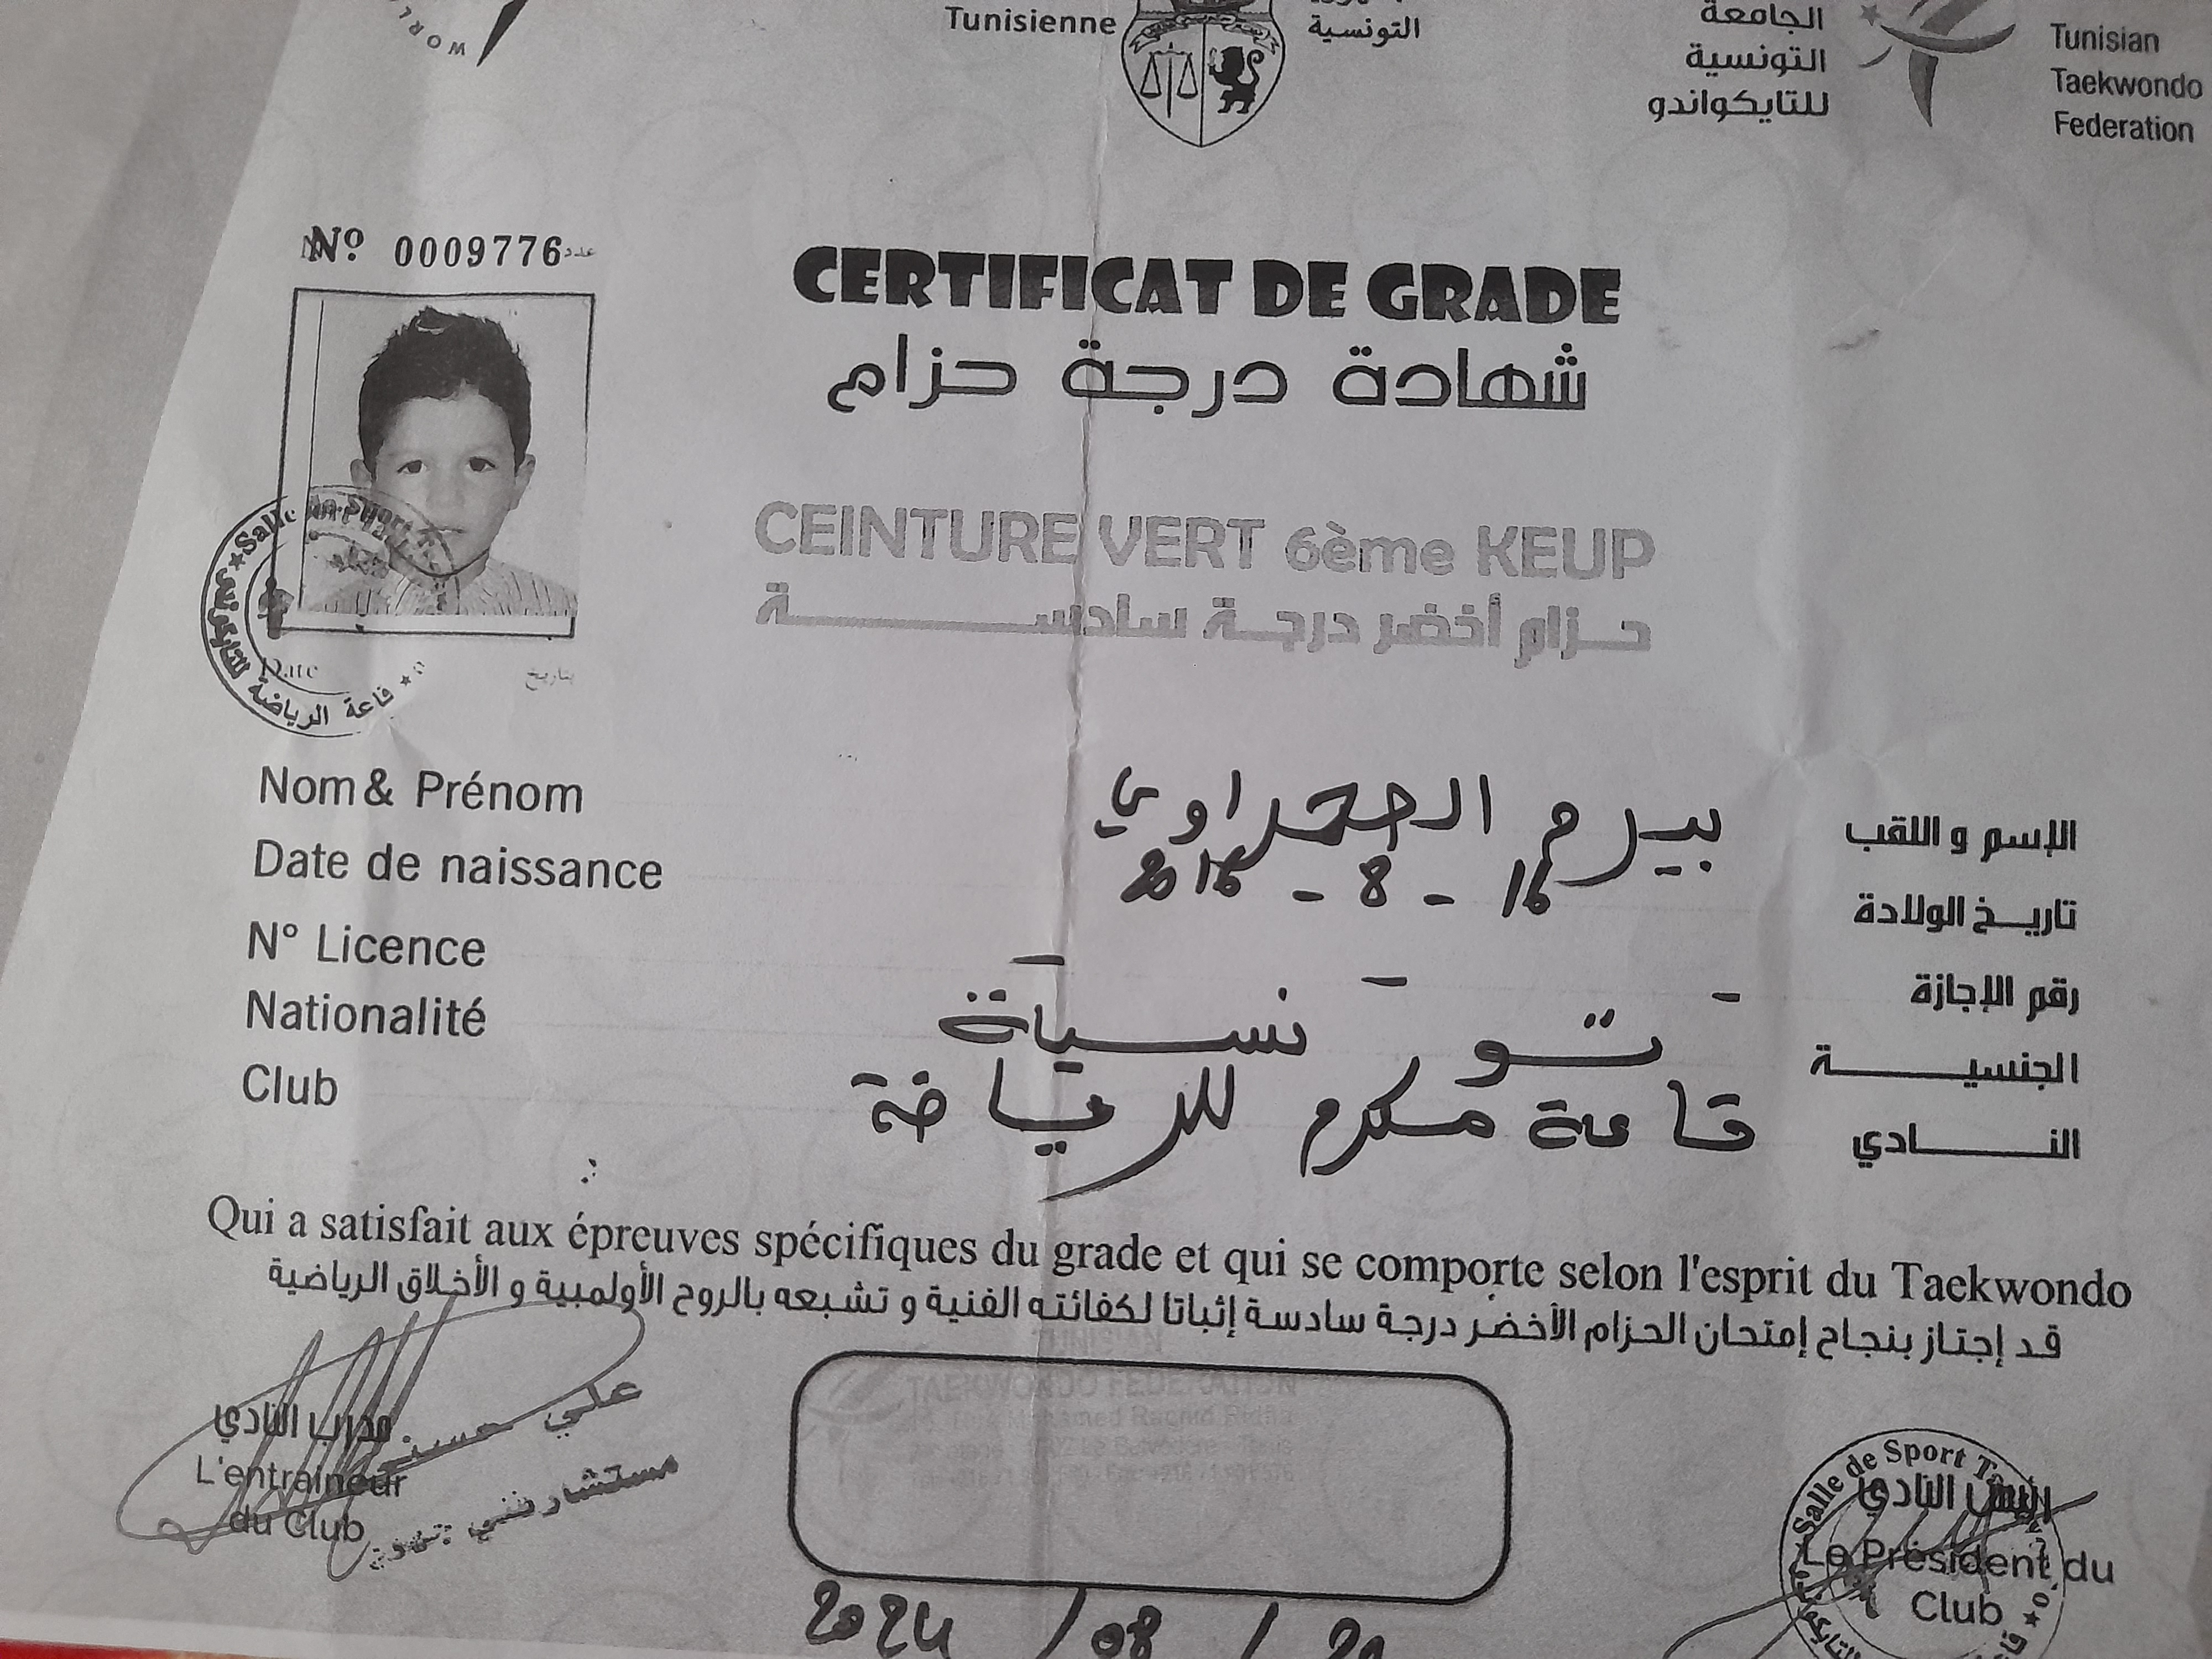 WORL
Tunisienne
التونسية
الجامعة
التونسية
للتايكواندو
Tunisian
Taekwondo
Federation
Nº 0009776 عدد
CERTIFICAT DE GRADE
شهادة درجة حزام
CEINTURE VERT 6ème KEUP
حزام أخضر درجة سادسة
Salle de Sport
قاعة الرياضة للتايكواندو
Date بتاريخ
Nom & Prénom بيرم الحمراوي الإسم و اللقب
Date de naissance 16 - 8 - 2016 تاريخ الولادة
N° Licence - - - رقم الإجازة
Nationalité تونسية الجنسية
Club قاعة مكرم للرياضة النادي
Qui a satisfait aux épreuves spécifiques du grade et qui se comporte selon l'esprit du Taekwondo
قد إجتاز بنجاح إمتحان الحزام الأخضر درجة سادسة إثباتا لكفائته الفنية و تشبعه بالروح الأولمبية و الأخلاق الرياضية
TUNISIAN
TAEKWONDO FEDERATION
Mohamed Rachid Ridha
مدرب النادي
L'entraineur
du Club
علي حسني
مستشار فني
Salle de Sport
رئيس النادي
Le Président du
Club
2024 / 08 /